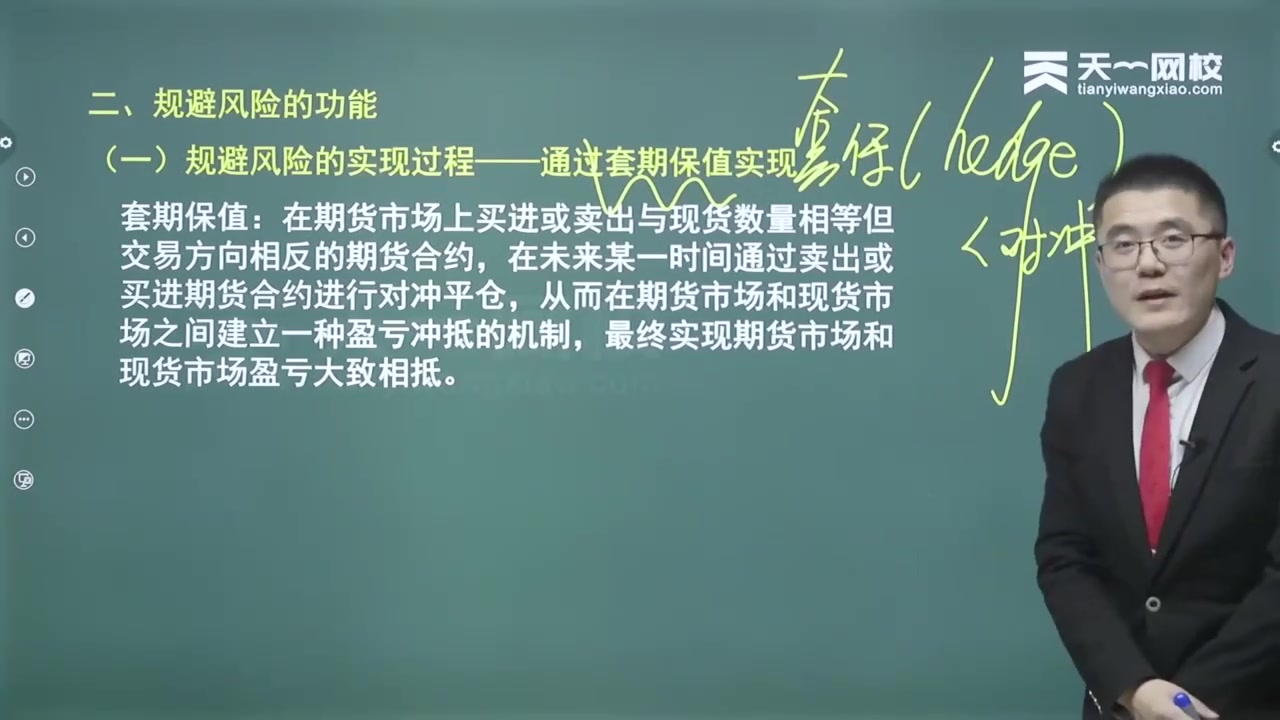 天一网校
tianyiwangxiao.com
二、规避风险的功能
（一）规避风险的实现过程——通过套期保值实现
套保(hedge)
对冲
套期保值：在期货市场上买进或卖出与现货数量相等但
交易方向相反的期货合约，在未来某一时间通过卖出或
买进期货合约进行对冲平仓，从而在期货市场和现货市
场之间建立一种盈亏冲抵的机制，最终实现期货市场和
现货市场盈亏大致相抵。